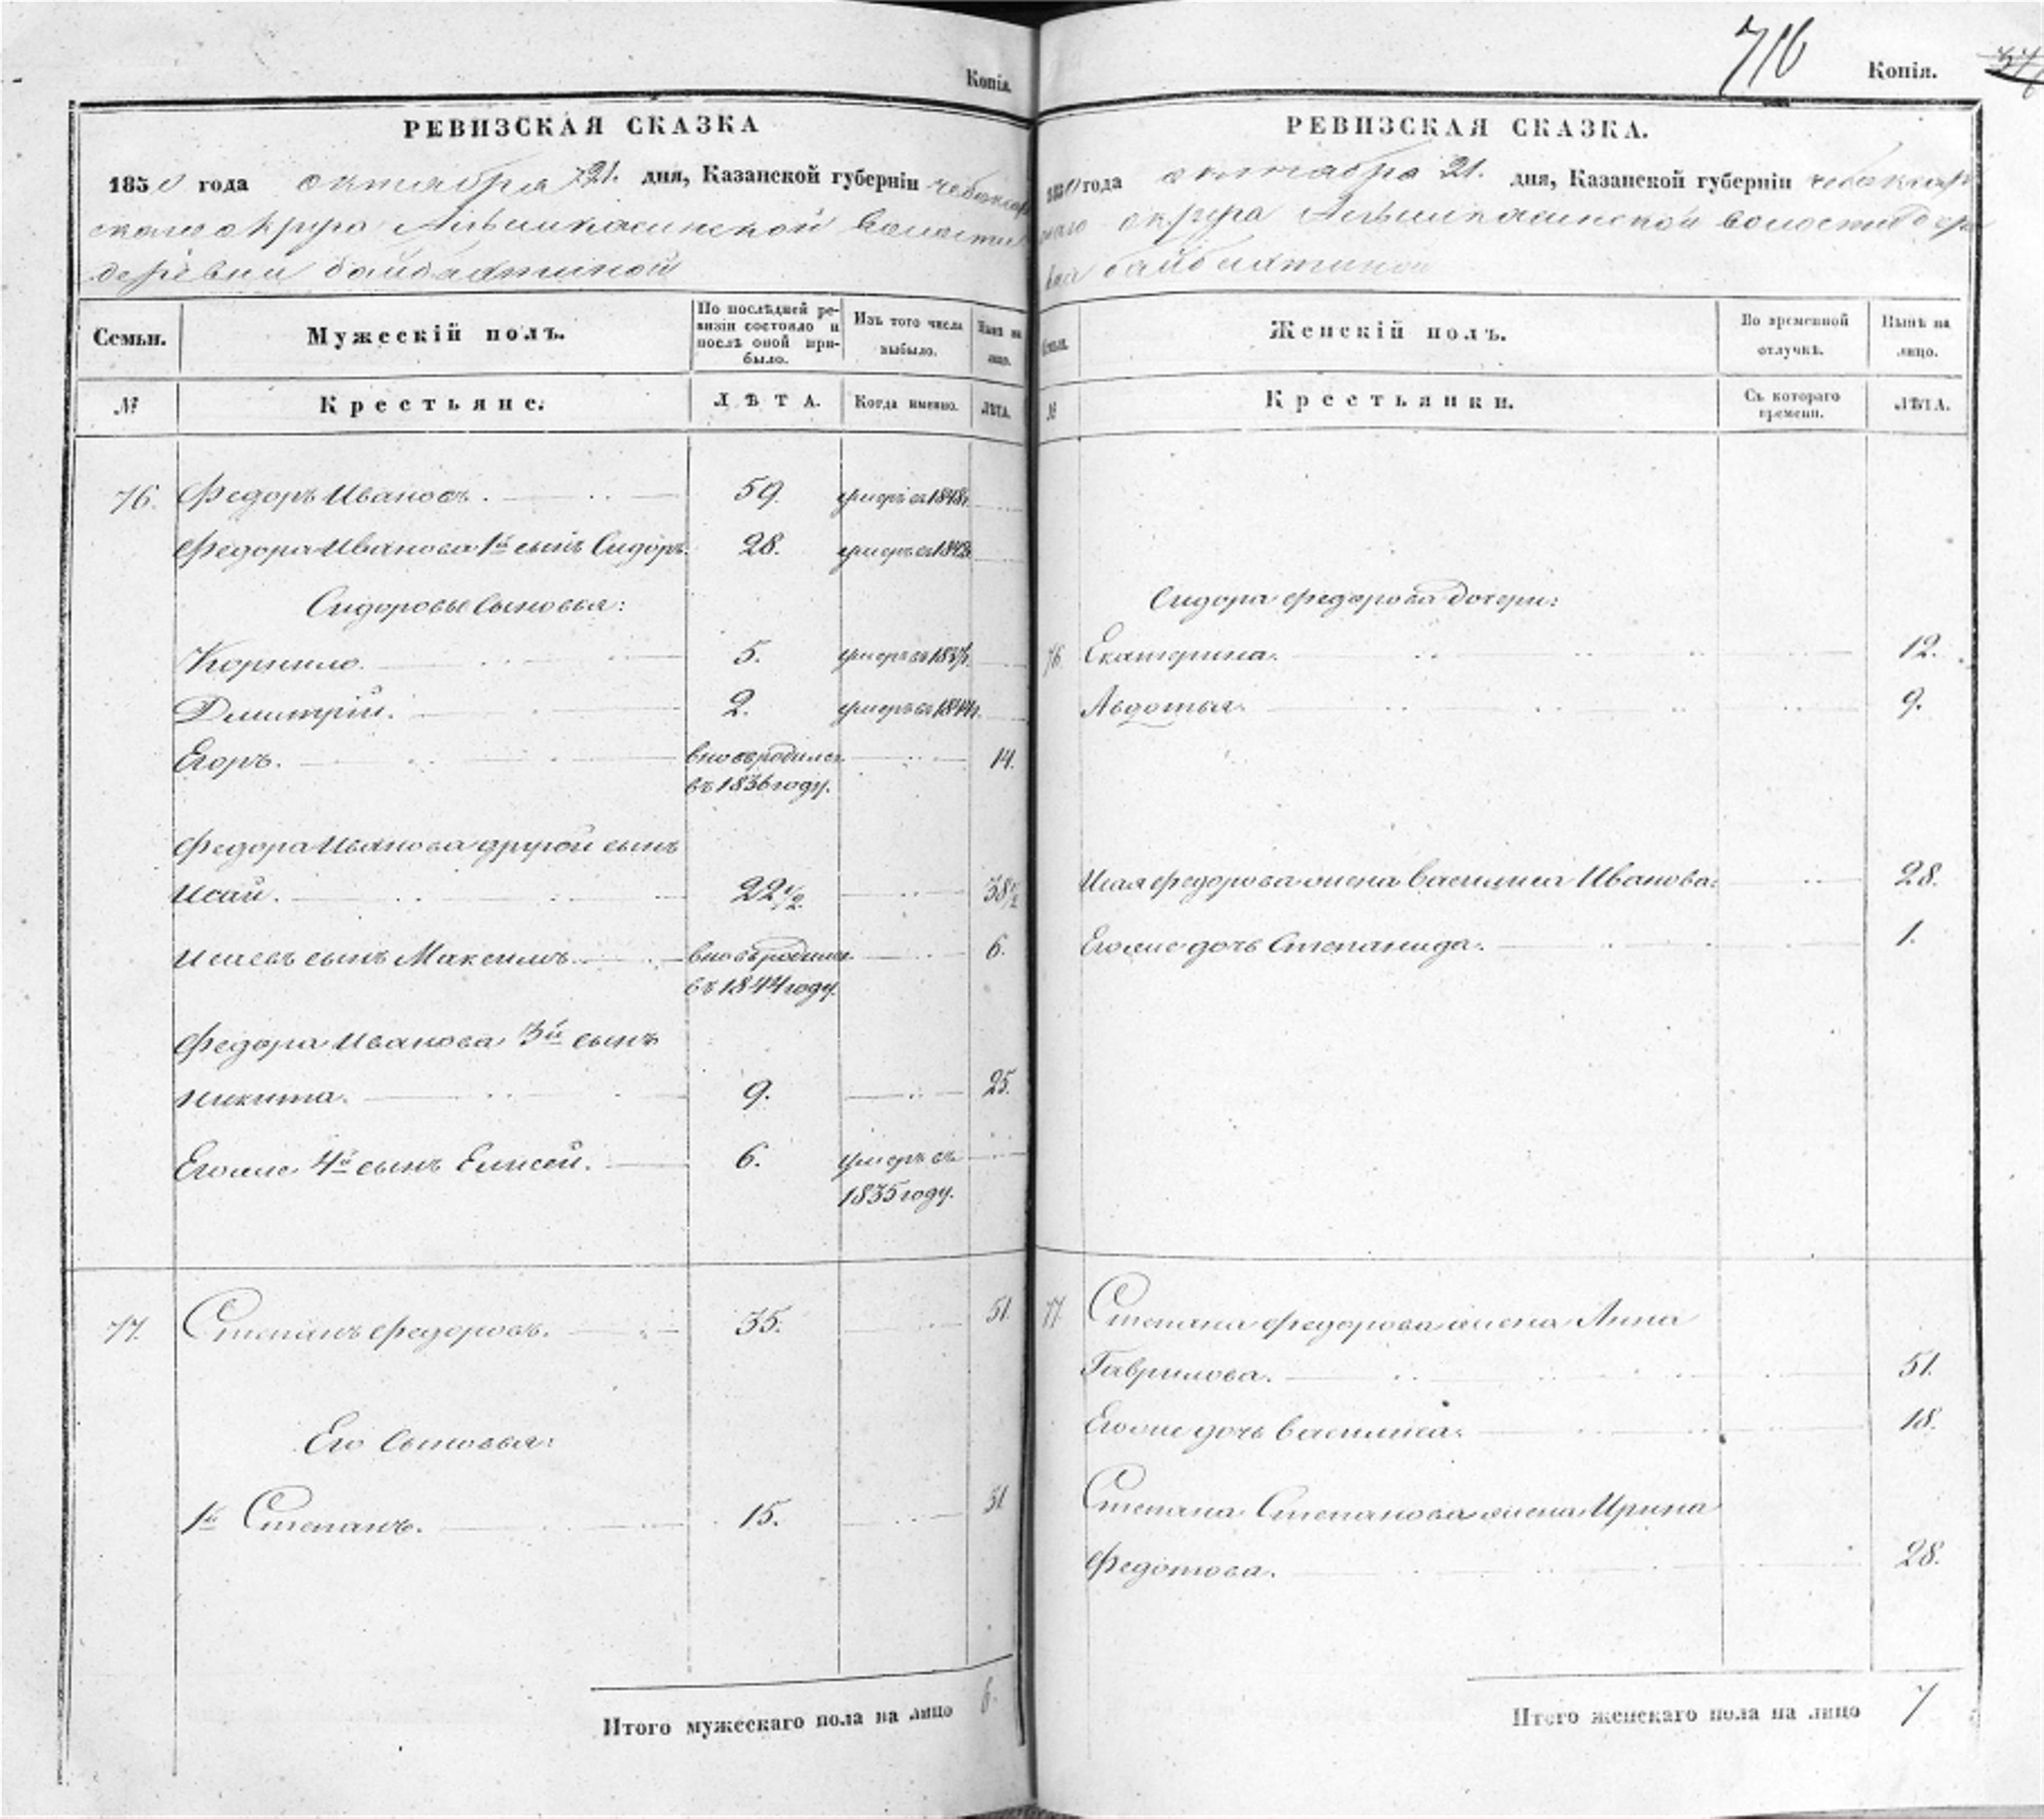 Копія.
РЕВИЗСКАЯ СКАЗКА
1850 года октября 21. дня, Казанской губерніи чебоксар
скаго округа Алымкасинской волости
деревни байбахтиной
Семьи.
Мужескій полъ.
По послѣдней ре-
визіи состояло и
послѣ оной при-
было.
Изъ того числа
выбыло.
Нынѣ на
лицо.
№
Крестьяне.
ЛѢТА.
Когда именно.
ЛѢТА.
76. Федоръ Ивановъ. 59. умеръ въ 1848г.
Федора Иванова 1й сынъ Сидоръ. 28. умеръ въ
Сидоровы Сыновья:
Корнило. 5. умеръ въ
Димитрій. 2. умеръ въ 1844г.
Егоръ. вновь родился 14.
въ 1836 году.
Федора Иванова другой сынъ
Исай. 22½ 38½
Исаевъ сынъ Максимъ. вновь родился 6.
въ 1844 году.
Федора Иванова 3й сынъ
Никита. 9. 25.
Егоже 4й сынъ Елисей. 6. умеръ въ
1835 году.
77. Степанъ Федоровъ. 35. 51
Его Сыновья:
1й Степанъ. 15. 31
Итого мужескаго пола на лицо 6.
716
Копія.
РЕВИЗСКАЯ СКАЗКА.
1850 года октября 21. дня, Казанской губерніи чебоксар
скаго округа Алымкасинской волости дере
вни байбахтиной
Семьи.
Женскій полъ.
Во временной
отлучкѣ.
Нынѣ на
лицо.
№
Крестьянки.
Съ котораго
времени.
ЛѢТА.
Сидора Федорова дочери:
76. Екатерина. 12.
Авдотья. 9.
Исая Федорова жена Василиса Иванова. 28.
Егоже дочь Степанида. 1.
77. Степана Федорова жена Анна
Гаврилова. 51.
Егоже дочь Василиса. 18.
Степана Степанова жена Ирина
Федотова. 28.
Итого женскаго пола на лицо 7